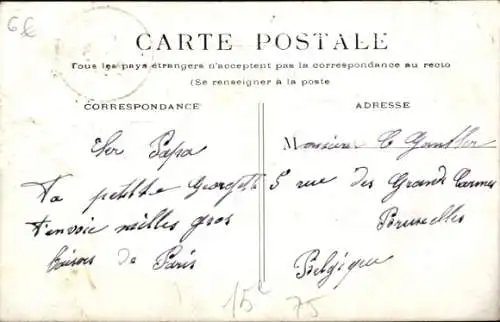 6€
CARTE POSTALE
Tous les pays étrangers n'acceptent pas la correspondance au recto
(Se renseigner à la poste
CORRESPONDANCE
Cher Papa
Ta petite Georgette
t'envoie milles gros
baisers de Paris
ADRESSE
Monsieur C Gauthier
5 rue des Grands Carmes
Bruxelles
Belgique
15€
75